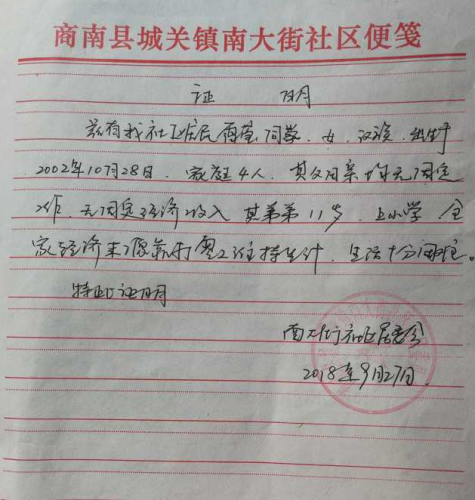 商南县城关镇南大街社区便笺
证 明
兹有我社区居民 同学、女、汉族、出生于
2002年10月28日、家庭4人、其父母亲均无固定
工作、无固定经济收入 其弟弟11岁、上小学 全
家经济来源靠打零工维持生计、生活十分困难。
特此证明
南大街社区居委会
2018年9月27日